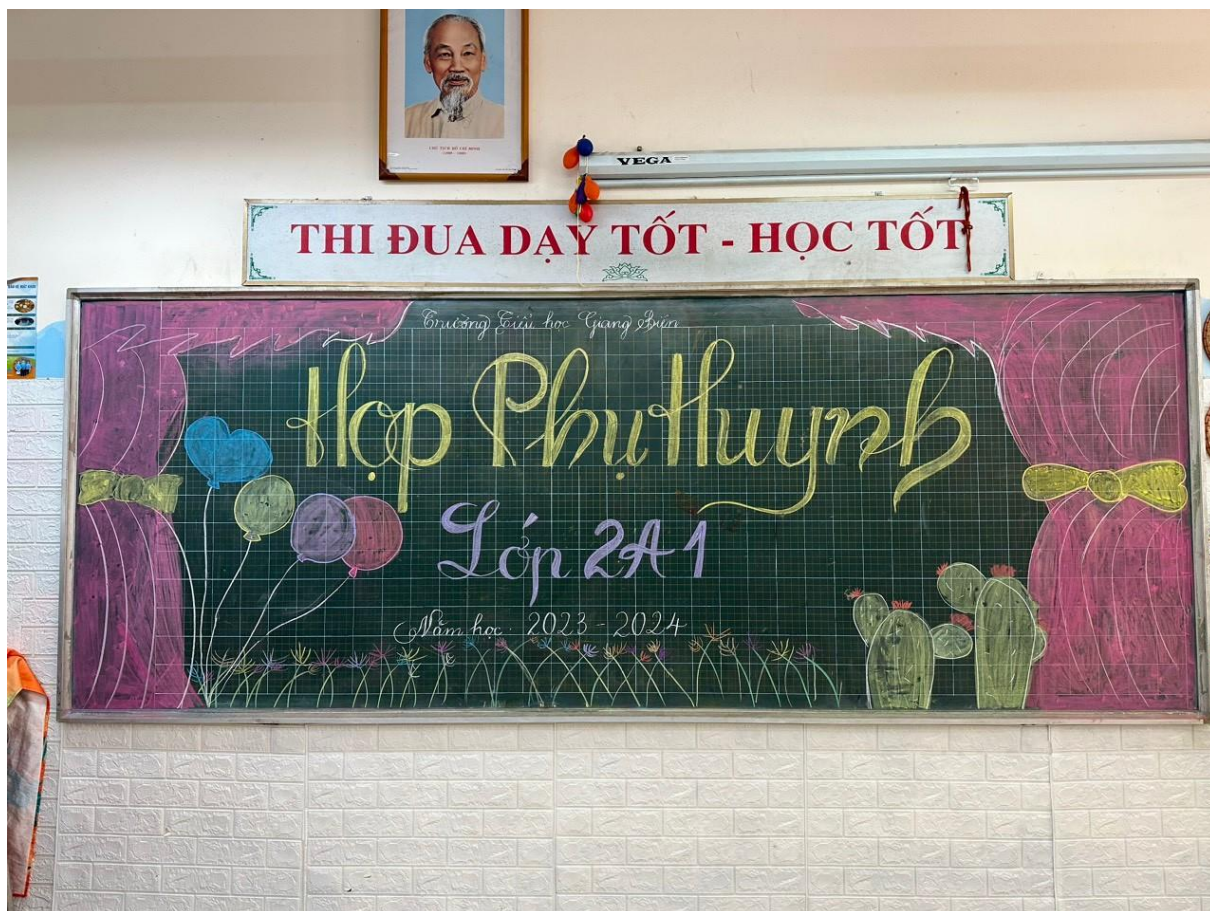 CHỦ TỊCH HỒ CHÍ MINH
VEGA
THI ĐUA DẠY TỐT - HỌC TỐT
Trường Tiểu học Giang Biên
Họp Phụ Huynh
Lớp 2A1
Năm học: 2023 - 2024